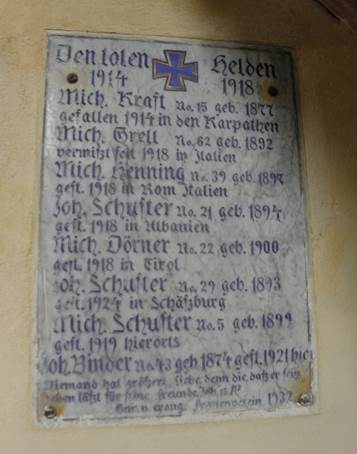 Den toten Helden
1914 1918
Mich. Kraft No. 15 geb. 1877
gefallen 1914 in den Karpathen
Mich. Grell No. 62 geb. 1892
vermißt seit 1918 in Italien
Mich. Henning No. 39 geb. 1897
gest. 1918 in Rom Italien
Joh. Schuster No. 21 geb. 1894
gest. 1918 in Albanien
Mich. Dörner No. 22 geb. 1900
gest. 1918 in Tirol
Joh. Schuster No. 29 geb. 1893
gest. 1924 in Schäßburg
Mich. Schuster No. 5 geb. 1899
gest. 1919 hierorts
Joh. Binder No. 43 geb 1874 gest. 1921 hier
Niemand hat größere Liebe denn die, daß er sein
Leben läßt für seine Freunde. Joh. 15
Frauenverein 1932